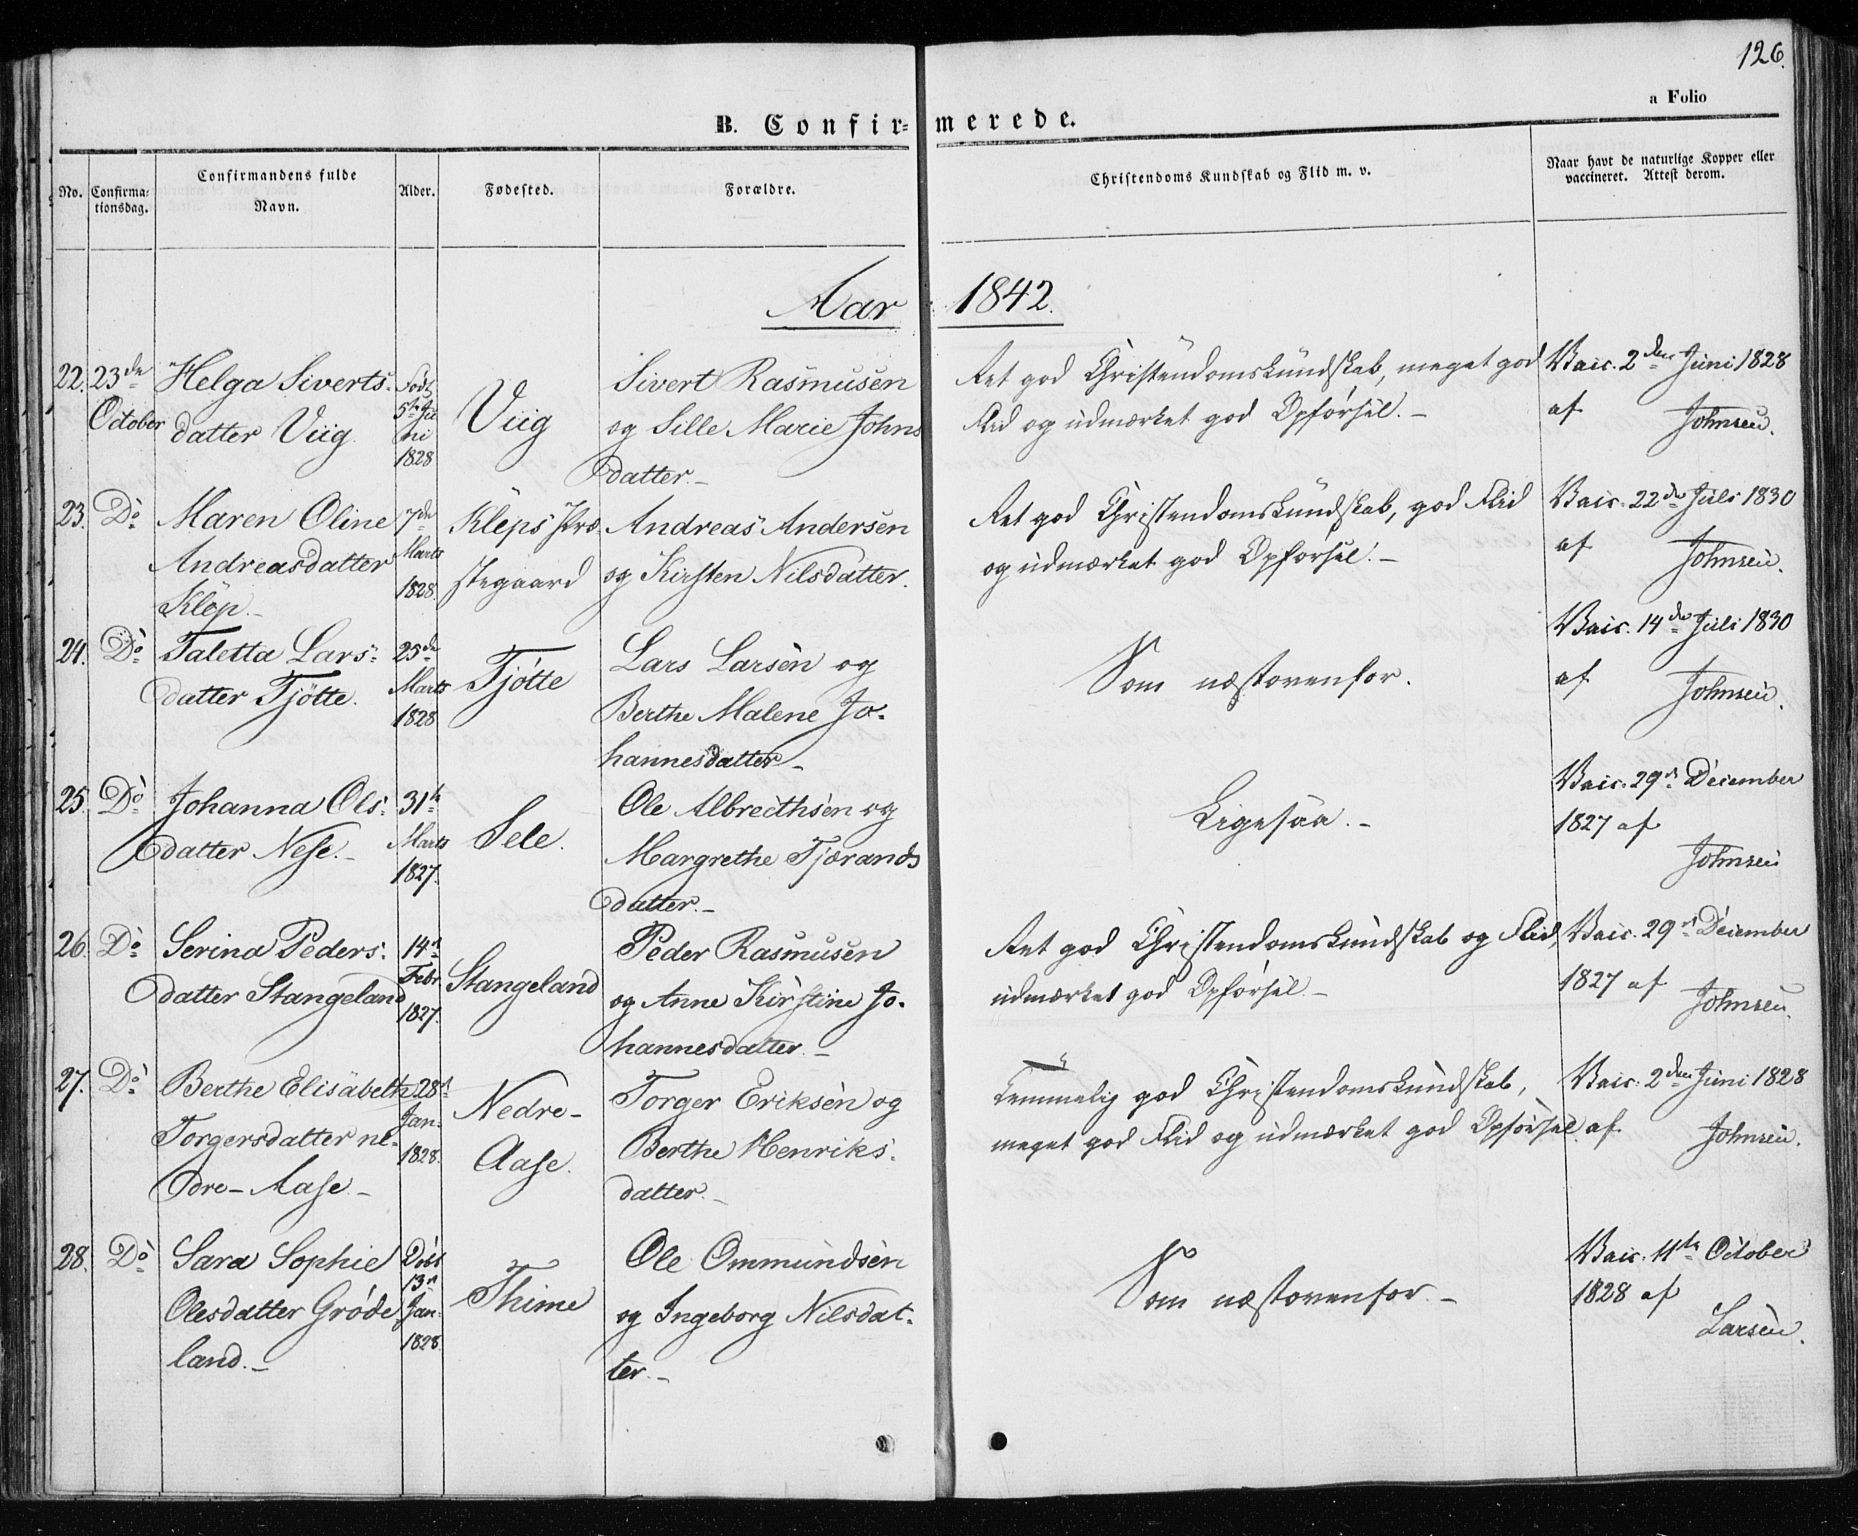 126.
a Folio
B. Confir=merede.
No.
Confirma=
tionsdag.
Confirmandens fulde
Navn.
Alder.
Fødested.
Forældre.
Christendoms Kundskab og Flid m. v.
Naar havt de naturlige Kopper eller
vaccineret. Attest derom.
Aar 1842.
22. 23de
October
Helga Siverts-
datter Viig.
Født
5te Ju
ni
1828
Viig
Sivert Rasmusen
og Sille Marie Johns
datter.-
Ret god Christendomskundskab, meget god
Flid og udmærket god Opførsel.-
Vacc. 2den Juni 1828
af
Johnsen.
23. Do
Maren Oline
Andreasdatter
Klep.-
7de
Marts
1828.
Kleps Præ-
stegaard
Andreas Andersen
og Kirsten Nilsdatter.
Ret god Christendomskundskab, god Flid
og udmærket god Opførsel.-
Vacc. 22de Juli 1830
af
Johnsen.
24. Do
Taletta Lars-
datter Tjøtte.
25de
Marts
1828
Tjøtte
Lars Larsen og
Berthe Malene Jo-
hannesdatter.-
Som næstovenfor.
Vacc. 14de Juli 1830
af
Johnsen.
25. Do
Johanna Ols-
datter Nese.-
31te
Marts
1827.
Sele.
Ole Albrecthsen og
Margrethe Tjærands
datter.-
Ligesaa.-
Vacc. 29n December
1827 af
Johnsen
26. Do
Serina Peders-
datter Stangeland
14n
Febr.
1827.
Stangeland
Peder Rasmusen
og Anne Kirstine Jo-
hannesdatter.-
Ret god Christendomskundskab og Flid,
udmærket god Opførsel.-
Vacc. 29n December
1827 af
Johnsen.
27. Do
Berthe Elisabeth
Torgersdatter ne-
dre-Aase.-
28n
Jan.
1828.
Nedre-
Aase.
Torger Eriksen og
Berthe Henriks-
datter.-
Temmelig god Christendomskundskab,
meget god Flid og udmærket god Opførsel.
Vacc. 2den Juni 1828
af
Johnsen.
28. Do
Sara Sophie
Olesdatter Grøde
land.-
Døbt
13n
Jan.
1828
Thime
Ole Ommundsen
og Ingeborg Nilsdat-
ter.-
Som næstovenfor.-
Vacc. 11te October
1828 af
Larsen.